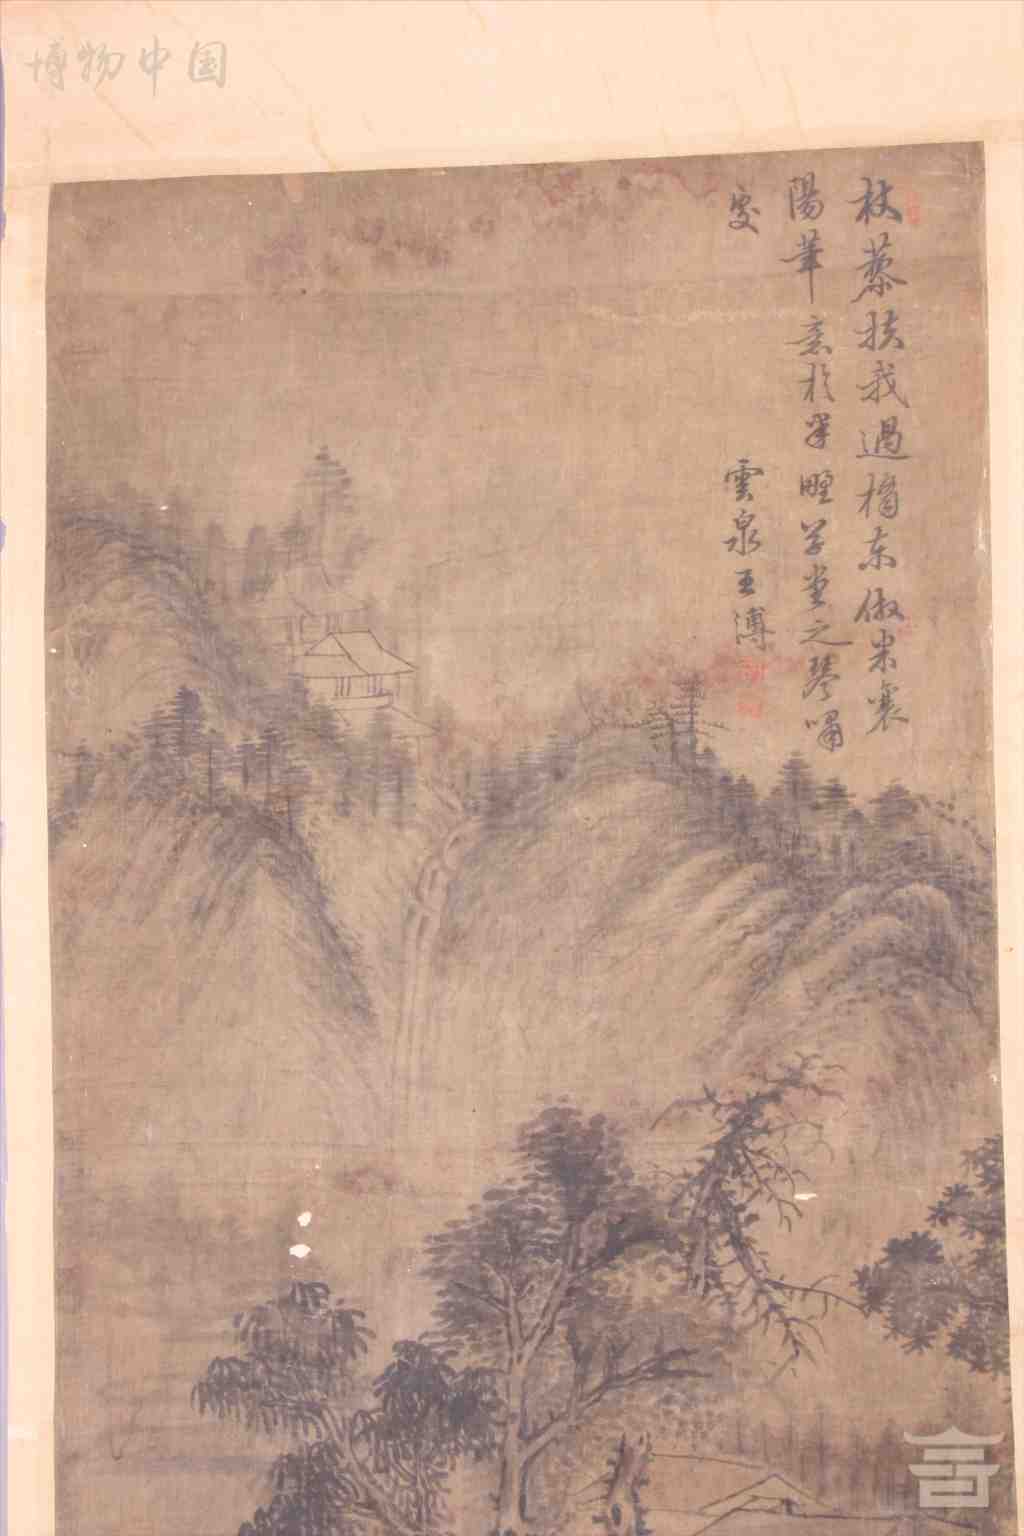 博物中国
杖藜扶我過橋東倣米襄
陽筆意於半野草堂之琴嘯
處
雲泉王溥